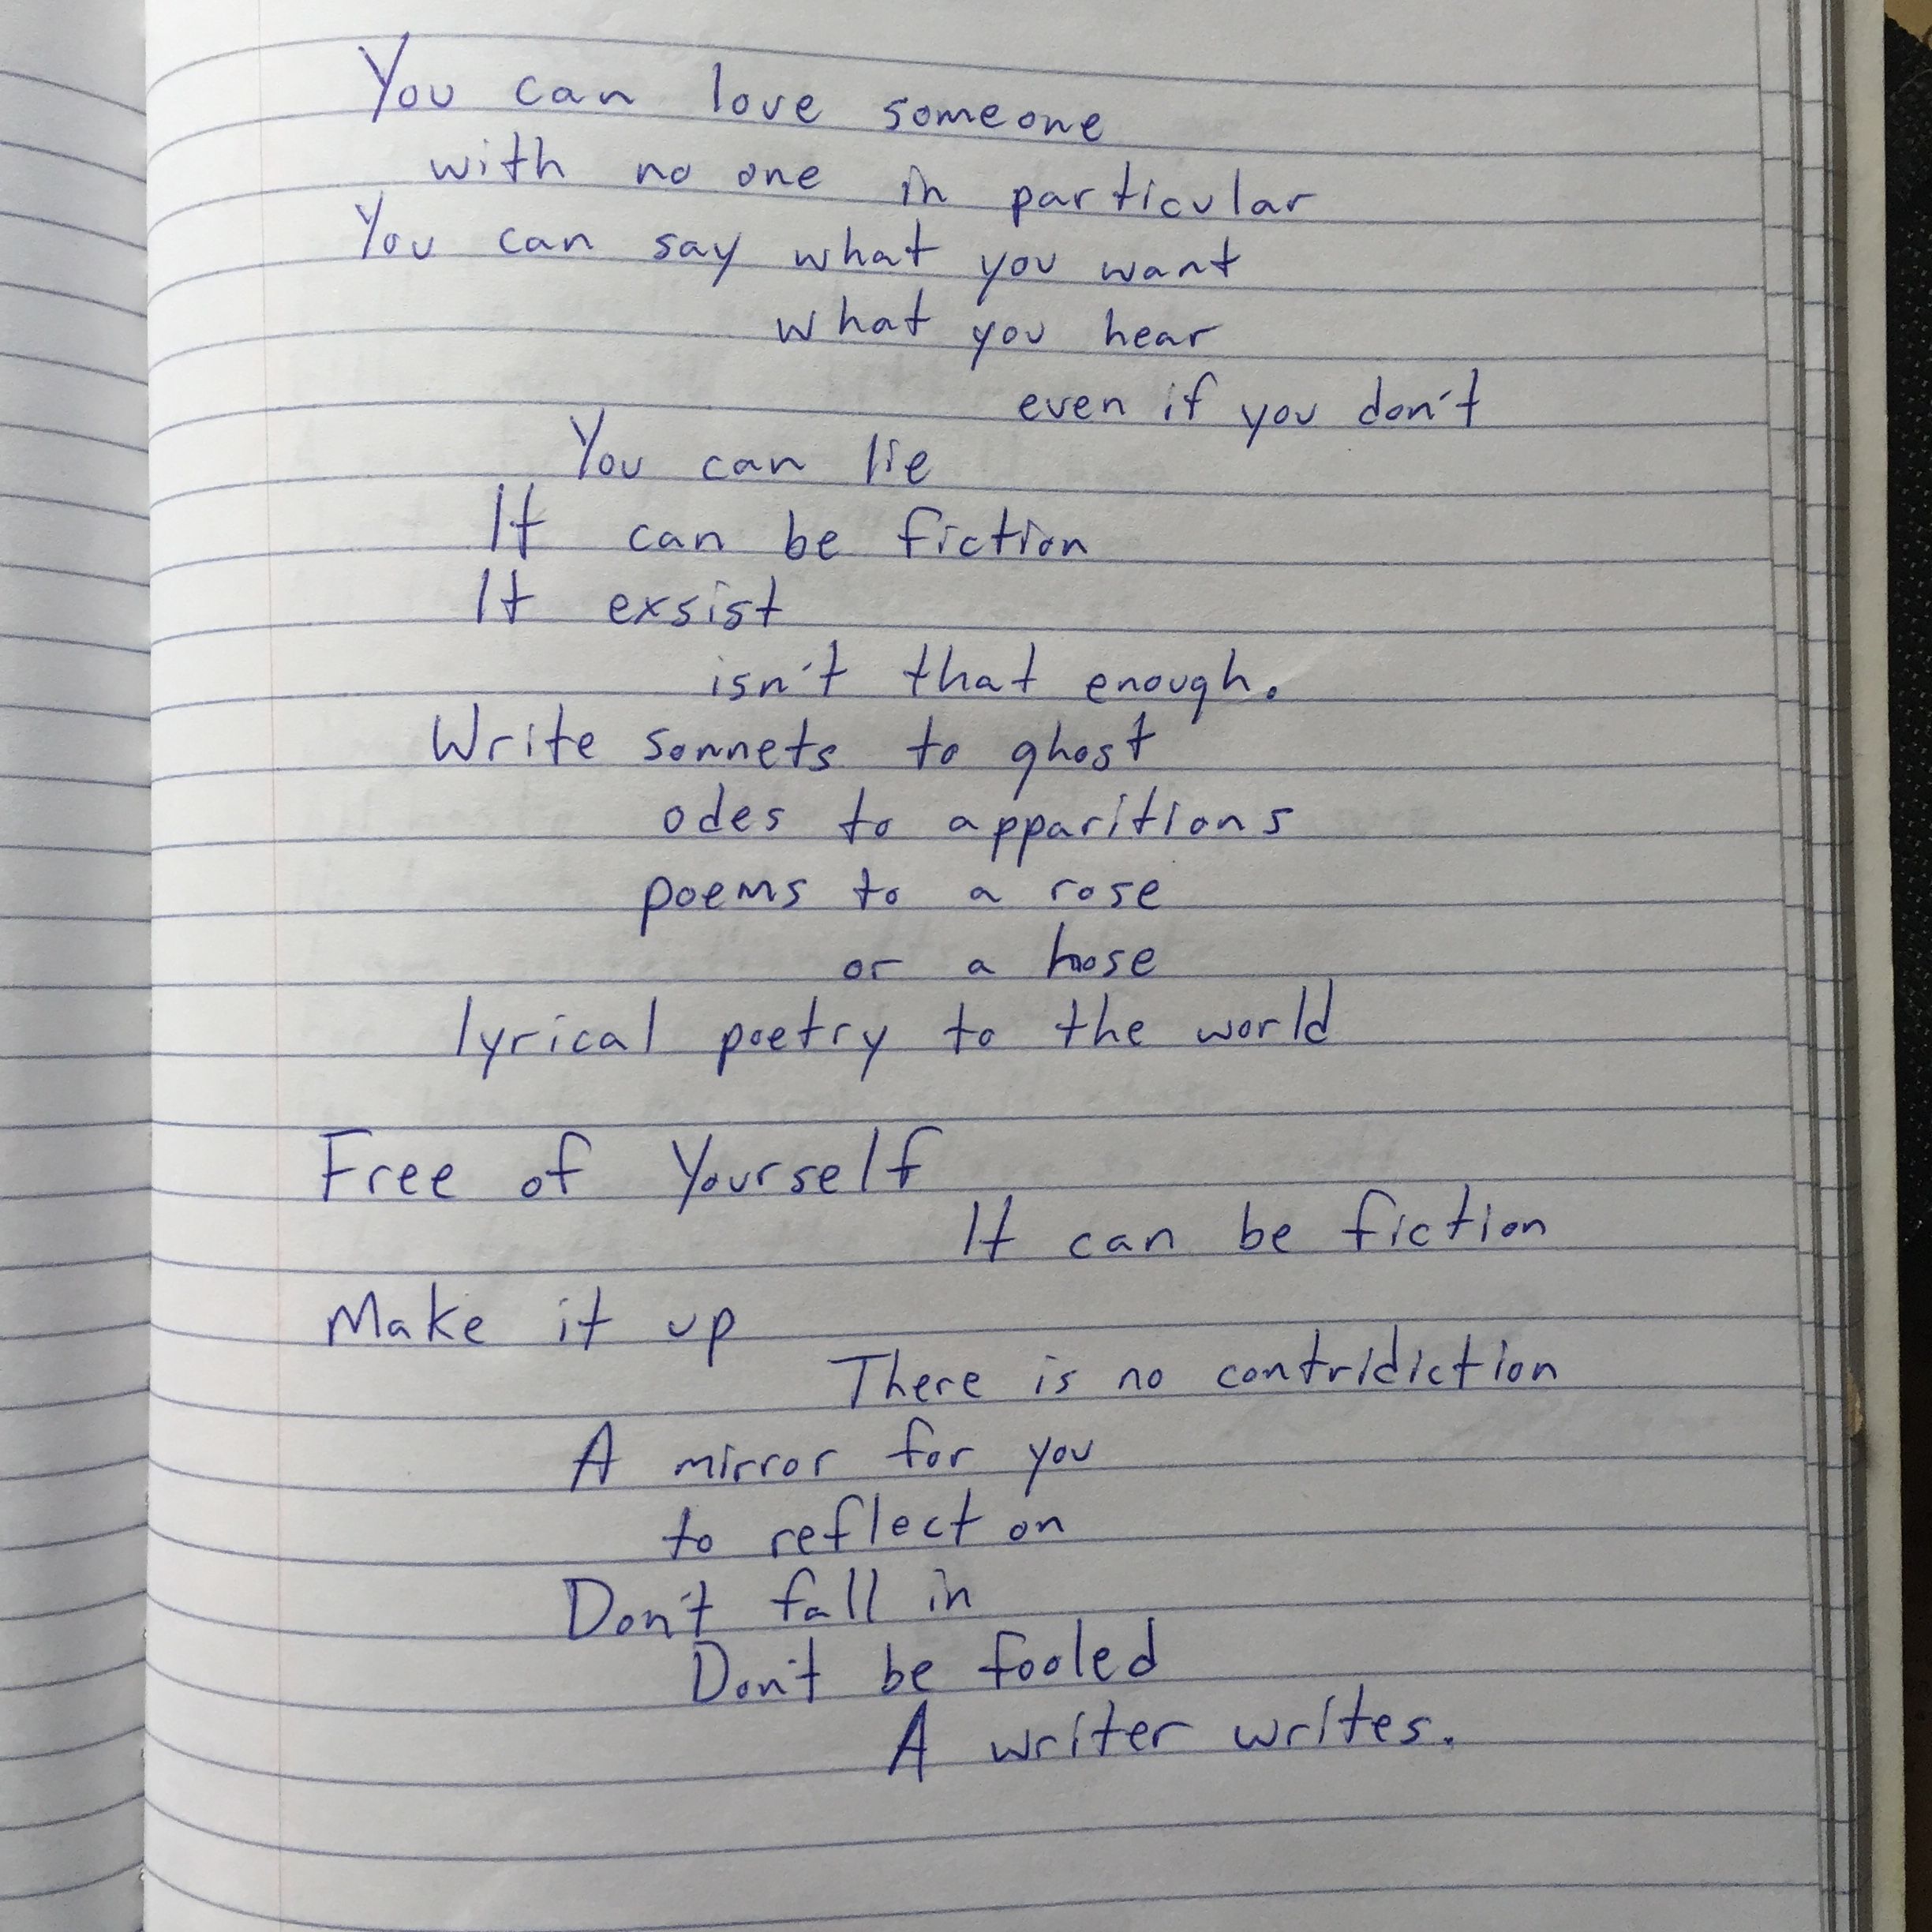 You can love someone
with no one in particular
You can say what you want
what you hear
even if you don't
You can lie
It can be fiction
It exsist
isn't that enough.
Write sonnets to ghost
odes to apparitions
poems to a rose
or a hose
lyrical poetry to the world
Free of Yourself
It can be fiction
Make it up
There is no contridiction
A mirror for you
to reflect on
Don't fall in
Don't be fooled
A writer writes.